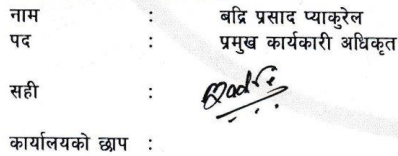 नाम : बद्रि प्रसाद प्याकुरेल
पद : प्रमुख कार्यकारी अधिकृत
सही : Badri
कार्यालयको छाप :